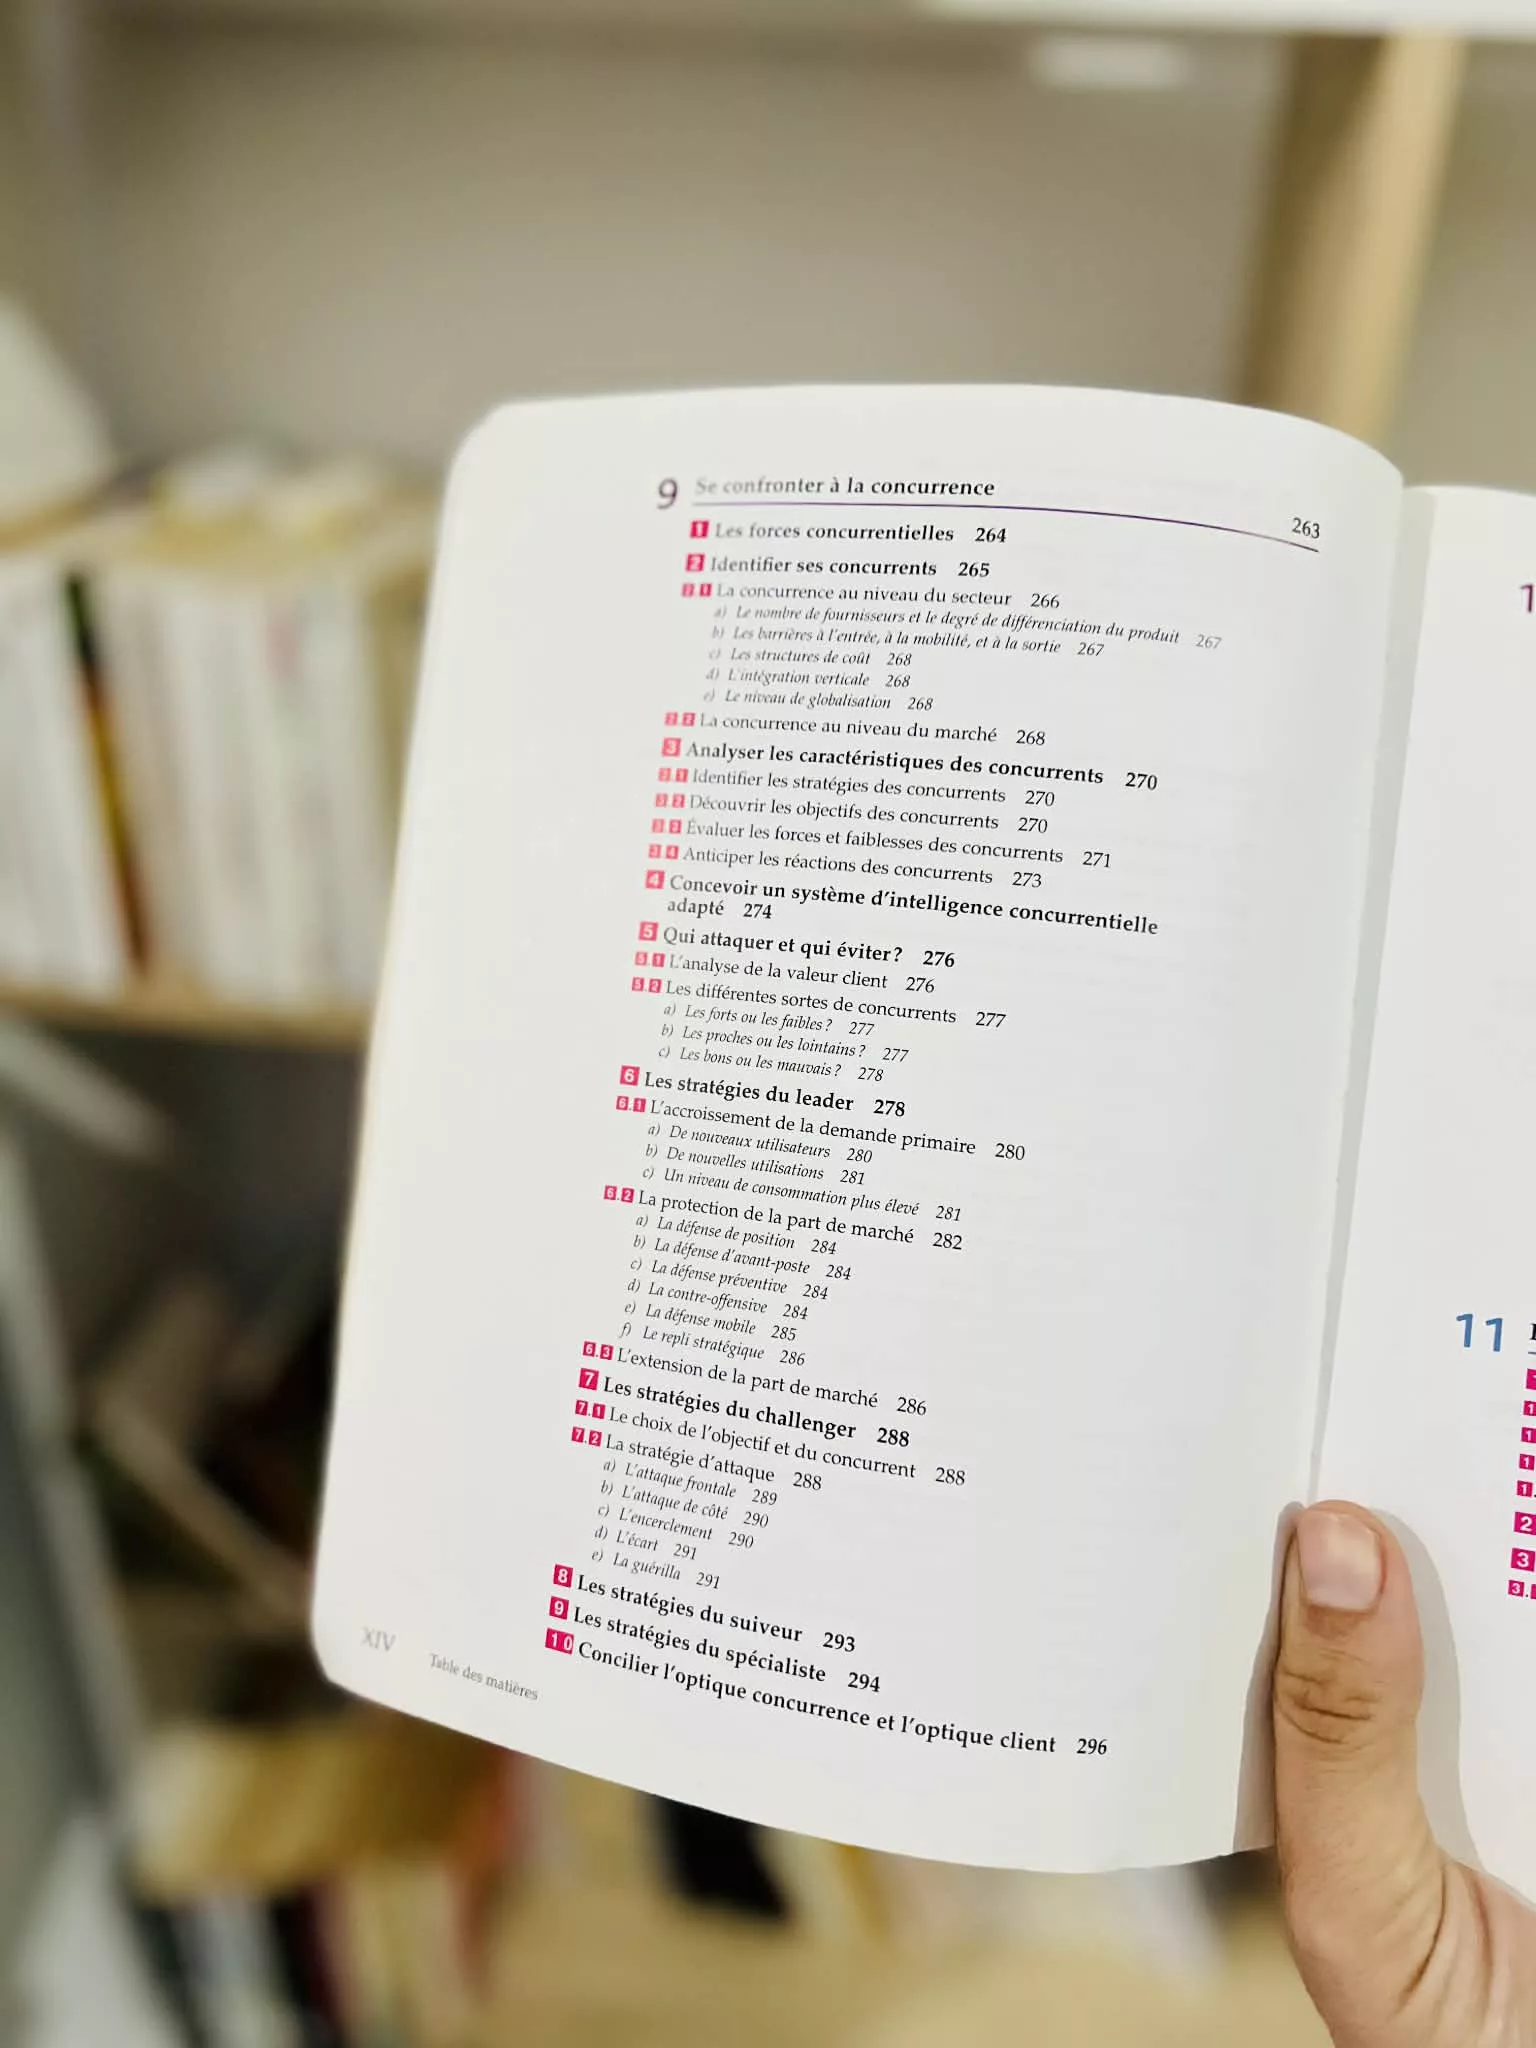 9 Se confronter à la concurrence 263
1 Les forces concurrentielles 264
2 Identifier ses concurrents 265
2.1 La concurrence au niveau du secteur 266
a) Le nombre de fournisseurs et le degré de différenciation du produit 267
b) Les barrières à l'entrée, à la mobilité, et à la sortie 267
c) Les structures de coût 268
d) L'intégration verticale 268
e) Le niveau de globalisation 268
2.2 La concurrence au niveau du marché 268
3 Analyser les caractéristiques des concurrents 270
3.1 Identifier les stratégies des concurrents 270
3.2 Découvrir les objectifs des concurrents 270
3.3 Évaluer les forces et faiblesses des concurrents 271
3.4 Anticiper les réactions des concurrents 273
4 Concevoir un système d'intelligence concurrentielle
adapté 274
5 Qui attaquer et qui éviter ? 276
5.1 L'analyse de la valeur client 276
5.2 Les différentes sortes de concurrents 277
a) Les forts ou les faibles ? 277
b) Les proches ou les lointains ? 277
c) Les bons ou les mauvais ? 278
6 Les stratégies du leader 278
6.1 L'accroissement de la demande primaire 280
a) De nouveaux utilisateurs 280
b) De nouvelles utilisations 281
c) Un niveau de consommation plus élevé 281
6.2 La protection de la part de marché 282
a) La défense de position 284
b) La défense d'avant-poste 284
c) La défense préventive 284
d) La contre-offensive 284
e) La défense mobile 285
f) Le repli stratégique 286
6.3 L'extension de la part de marché 286
7 Les stratégies du challenger 288
7.1 Le choix de l'objectif et du concurrent 288
7.2 La stratégie d'attaque 288
a) L'attaque frontale 289
b) L'attaque de côté 290
c) L'encerclement 290
d) L'écart 291
e) La guérilla 291
8 Les stratégies du suiveur 293
9 Les stratégies du spécialiste 294
10 Concilier l'optique concurrence et l'optique client 296
XIV Table des matières
11
2
3